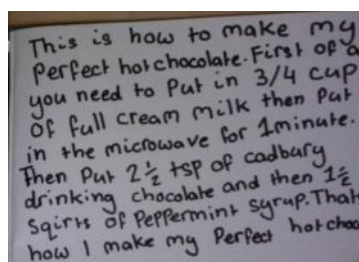 This is how to make my
Perfect hotchocolate. First of a
you need to Put in 3/4 cup
of full cream milk then Put
in the microwave for 1minute.
Then Put 2½ tsp of cadbury
drinking chocolate and then 1½
sqirts of Peppermint syrup. That
how I make my Perfect hotchoc